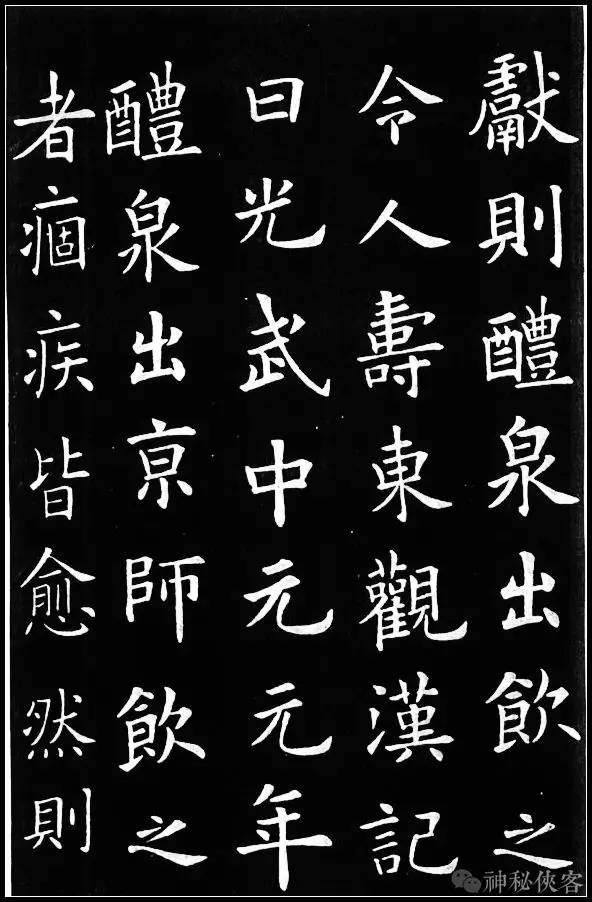 獻則醴泉出飲之
令人壽東觀漢記
曰光武中元元年
醴泉出京師飲之
者痼疾皆愈然則
神秘俠客